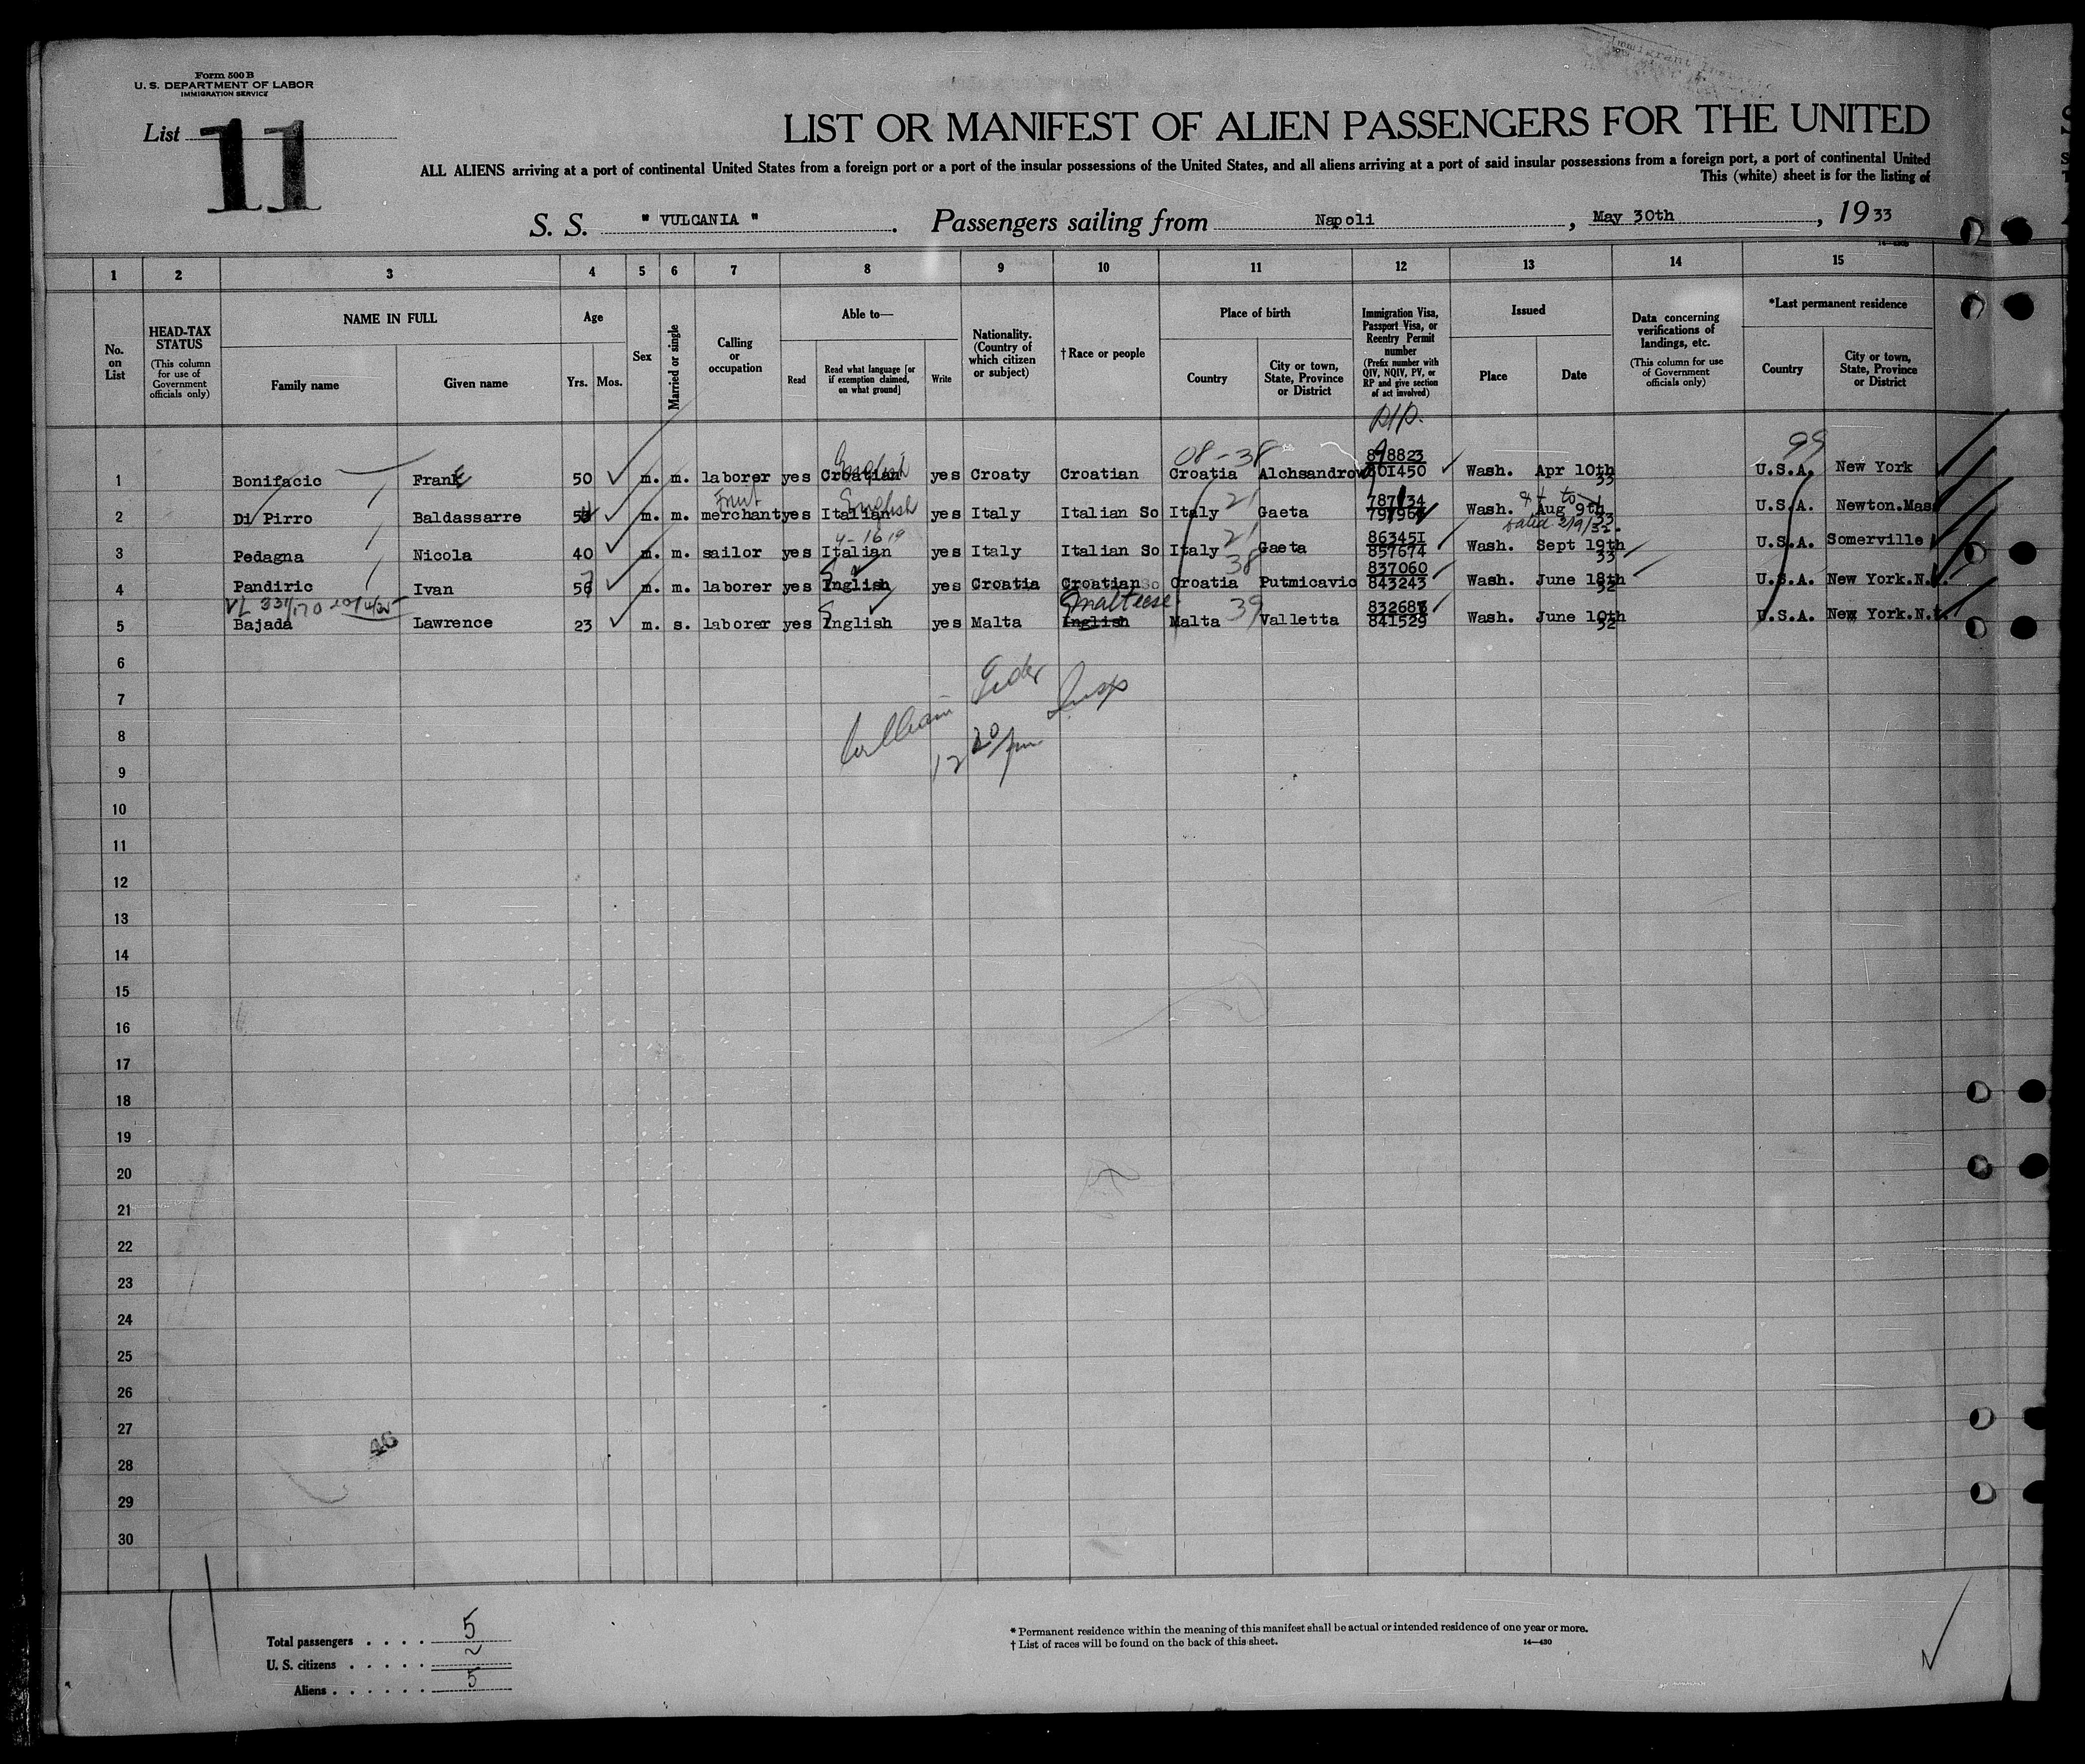 Form 500 B
U. S. DEPARTMENT OF LABOR
IMMIGRATION SERVICE
List 11
LIST OR MANIFEST OF ALIEN PASSENGERS FOR THE UNITED
ALL ALIENS arriving at a port of continental United States from a foreign port or a port of the insular possessions of the United States, and all aliens arriving at a port of said insular possessions from a foreign port, a port of continental United
This (white) sheet is for the listing of
S. S. " VULCANIA ". Passengers sailing from Napoli, May 30th, 1933
1 2 3 4 5 6 7 8 9 10 11 12 13 14 15
No. on List
HEAD-TAX STATUS
(This column for use of Government officials only)
NAME IN FULL
Family name
Given name
Age
Yrs. Mos.
Sex
Married or single
Calling or occupation
Able to—
Read
Read what language [or if exemption claimed, on what ground]
Write
Nationality. (Country of which citizen or subject)
† Race or people
Place of birth
Country
City or town, State, Province or District
Immigration Visa, Passport Visa, or Reentry Permit number
(Prefix number with QIV, NQIV, PV, or RP and give section of act involved)
Issued
Place
Date
Data concerning verifications of landings, etc.
(This column for use of Government officials only)
*Last permanent residence
Country
City or town, State, Province or District
99
08-38
English
898823
1 Bonifacic Frank 50 m. m. laborer yes Croatian yes Croaty Croatian Croatia Wash. Apr 10th 33 U.S.A. New York
Fruit English 21
2 Di Pirro Baldassarre m. m. merchant yes Italian yes Italy Italian So Italy Gaeta Wash. Aug 9th 33 U.S.A. Newton.Mas
21 863451
3 Pedagna Nicola 40 m. m. sailor yes Italian yes Italy Italian So Italy Gaeta 857674 Wash. Sept 19th 33 U.S.A. Somerville
38 837060
4 Pandiric Ivan m. m. laborer yes English yes Croatia Croatian So Croatia Putmicavic 843243 Wash. June 18th 32 U.S.A. New York.N.
Maltese 39
5 Bajada Lawrence 23 m. s. laborer yes English yes Malta English Malta Valletta 841529 Wash. June 10th 32 U.S.A. New York.N.Y.
6
William Insp
7
8
12 20 pm
9
10
11
12
13
14
15
16
17
18
19
20
21
22
23
24
25
26
27
46
28
29
30
Total passengers . . . . 5
U. S. citizens . . . . .
Aliens . . . . . . 5
* Permanent residence within the meaning of this manifest shall be actual or intended residence of one year or more.
† List of races will be found on the back of this sheet.
14—430